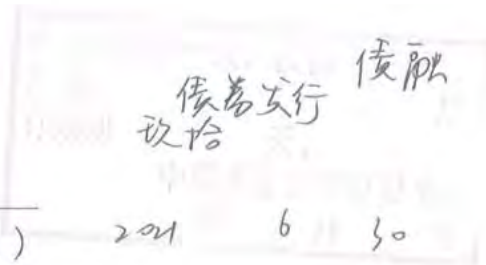 债融
债券发行
玖拾
) 2021 6 30